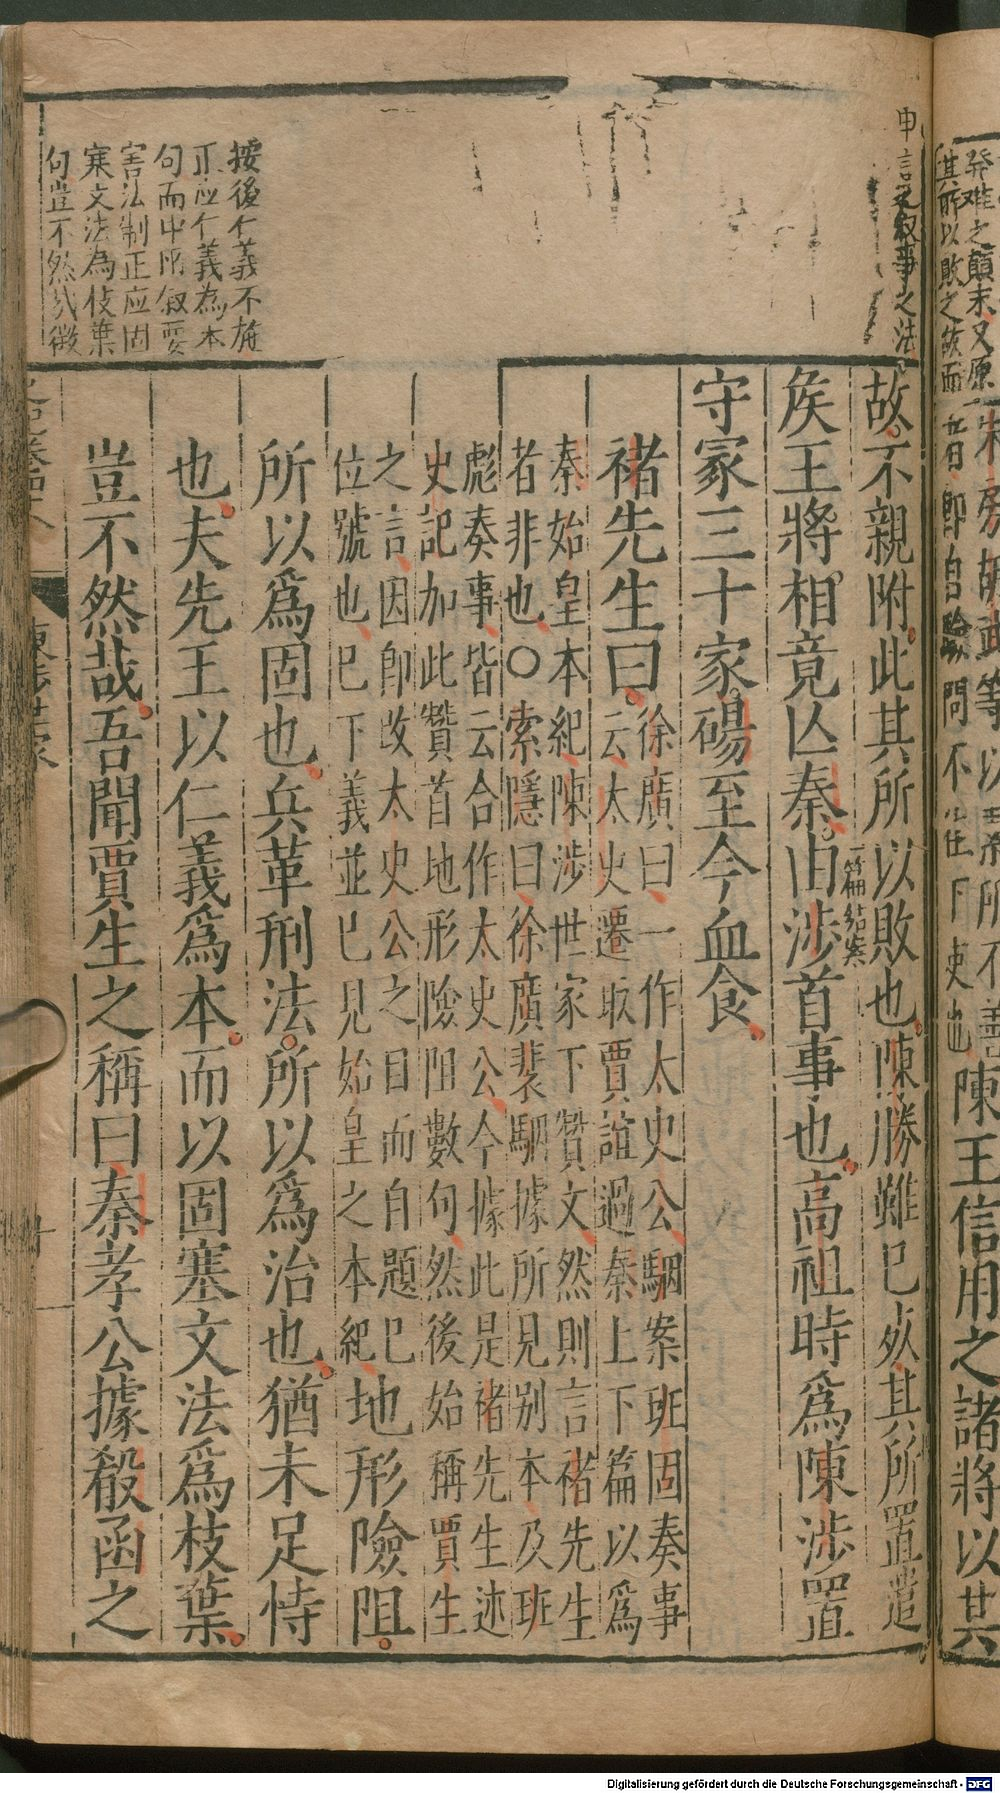 發难之顛末又原
其所以敗之故而
申言之叙事之法
陳王信用之諸將以其
故不親附此其所以敗也陳勝雖已死其所置遣
矦王將相竟亾秦由涉首事也高祖時爲陳涉置
一篇結案
守冢三十家碭至今血食
褚先生曰
徐廣曰一作太史公駰案班固奏事
云太史遷取賈誼過秦上下篇以爲
秦始皇本紀陳涉世家下贊文然則言褚先生
者非也○索隱曰徐廣裴駰據所見别本及班
彪奏事皆云合作太史公今據此是褚先生述
史記加此贊首地形險阻數句然後始稱賈生
之言因即改太史公之目而自題已
位號也已下義並已見始皇之本紀
地形險阻
所以爲固也兵革刑法所以爲治也猶未足恃
也夫先王以仁義爲本而以固塞文法爲枝葉
豈不然哉吾聞賈生之稱曰秦孝公據殽函之
按後仁義不施
正应仁義為本
句而中所叙要
害法制正应固
寨文法為枝葉
句豈不然哉徵
陳涉世家
Digitalisierung gefördert durch die Deutsche Forschungsgemeinschaft - DFG